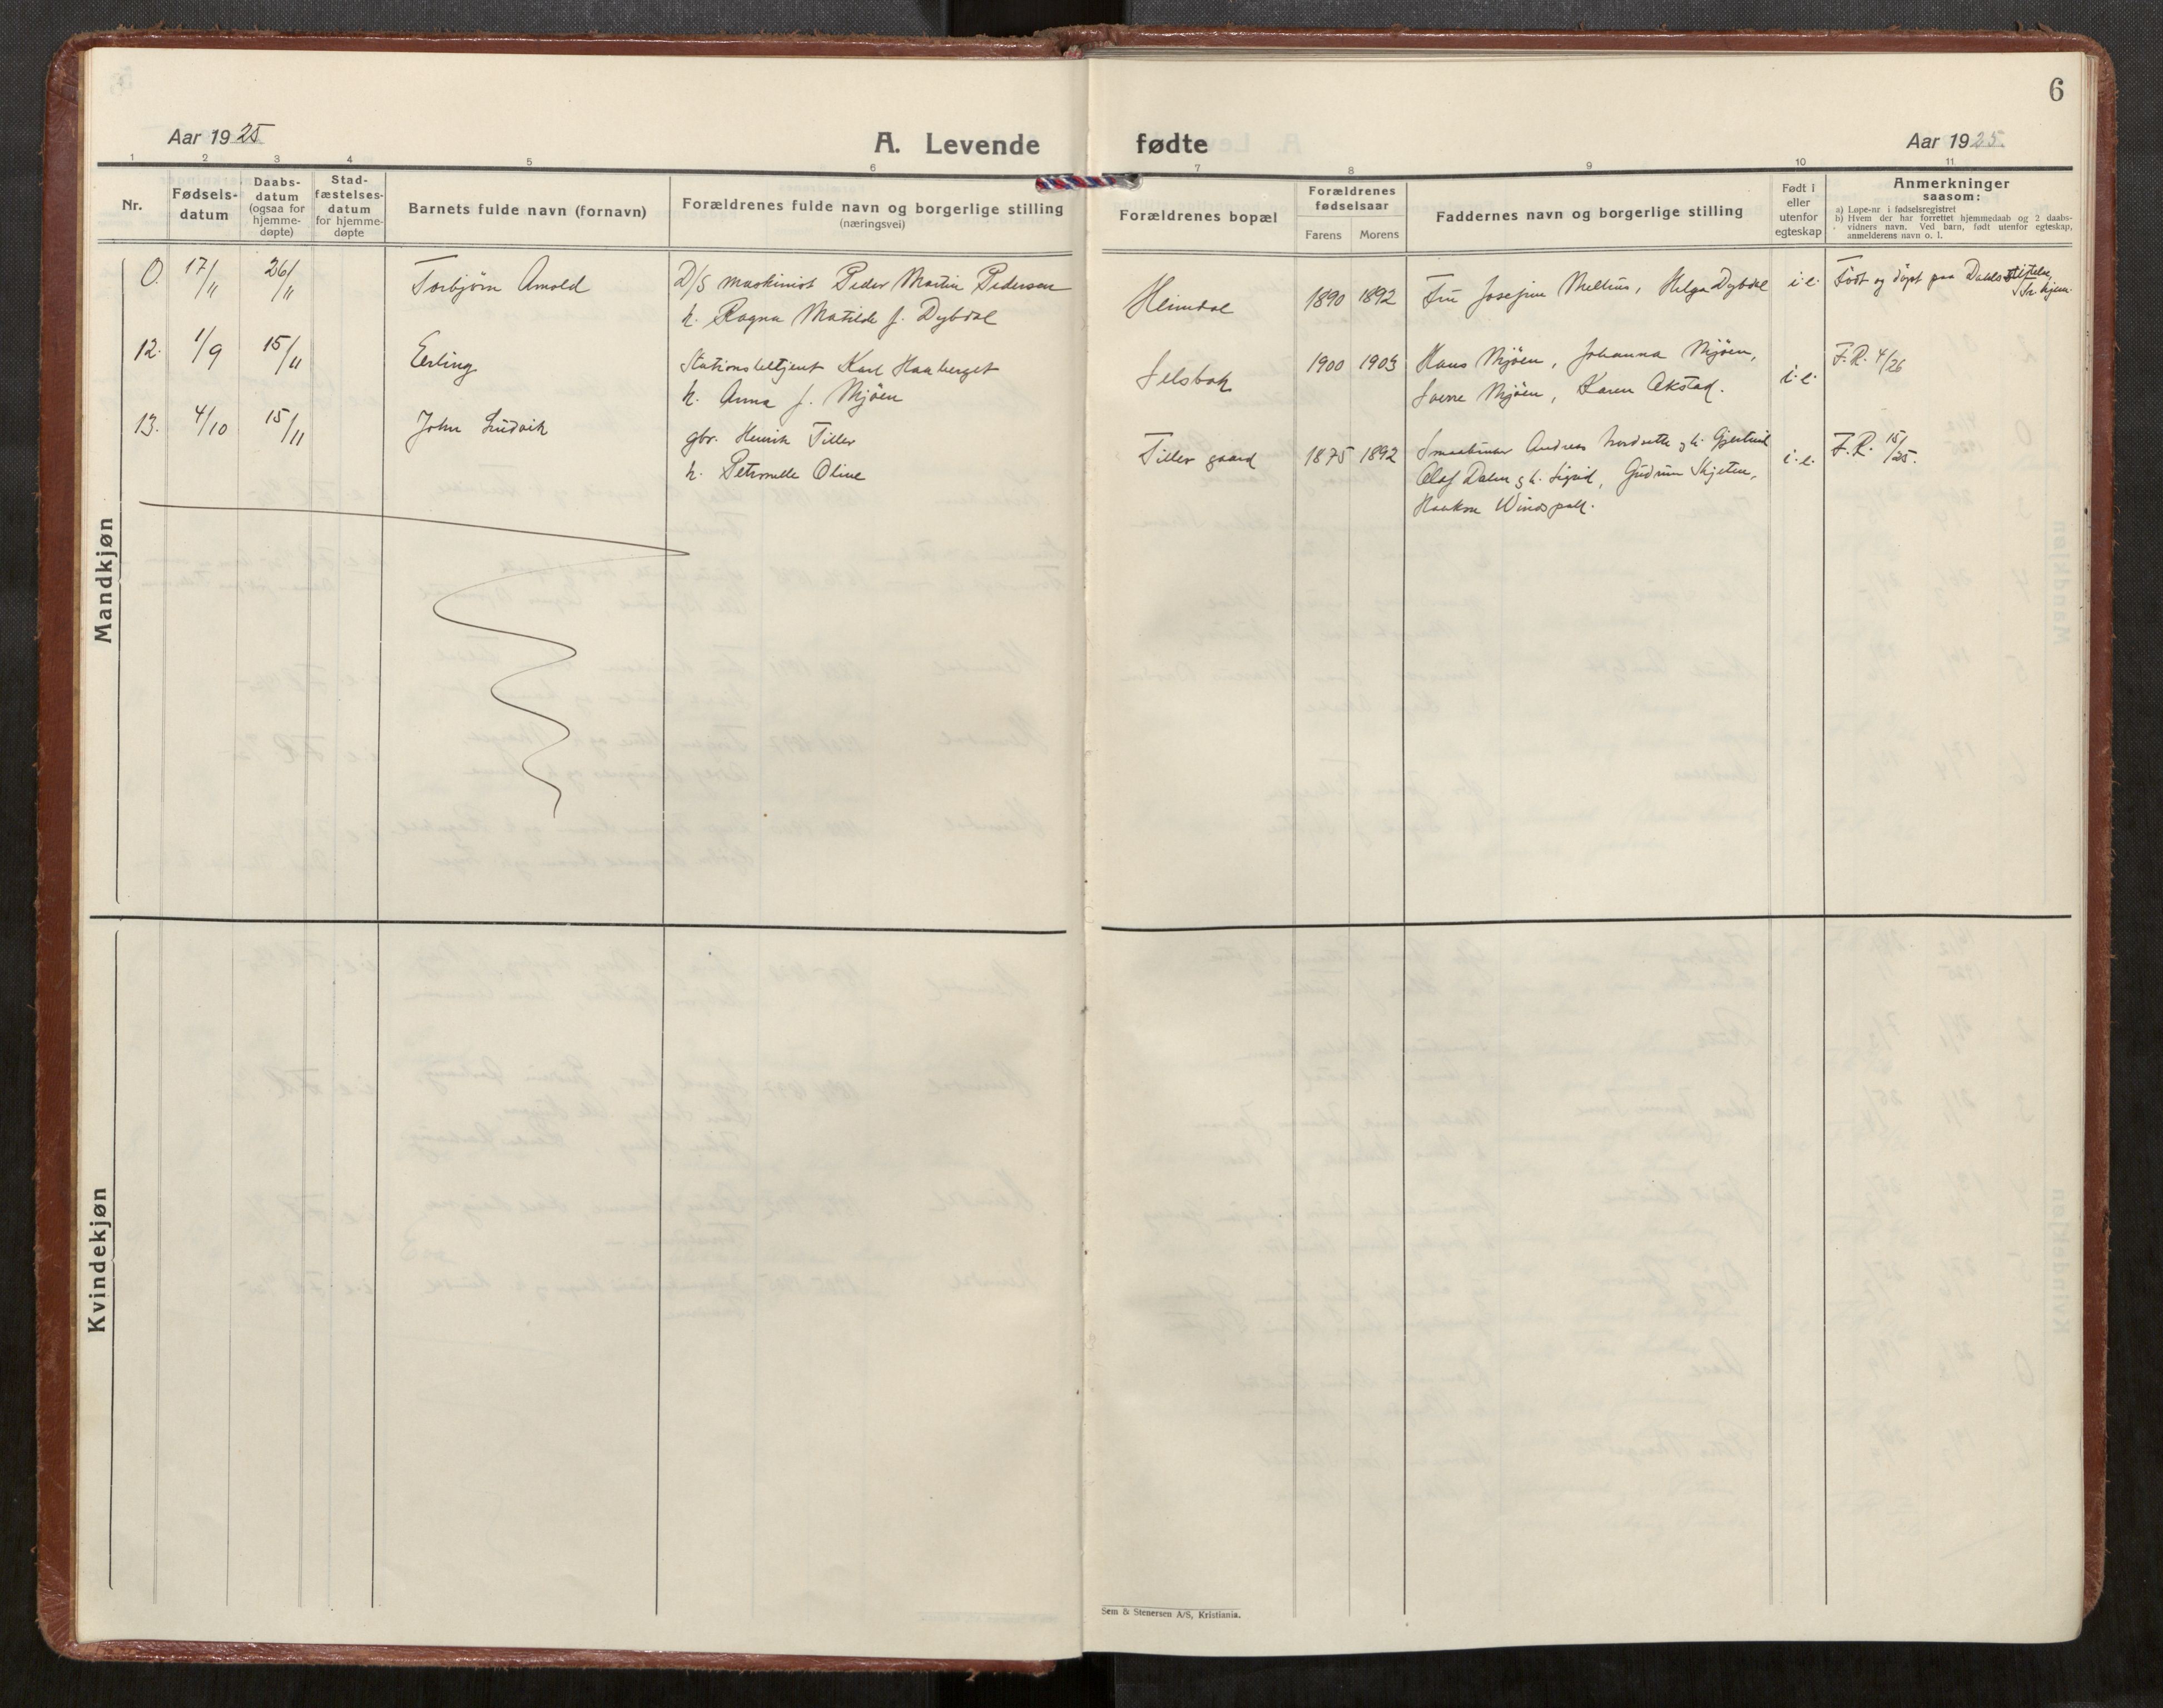 6
Aar 1925
A. Levende
fødte
Aar 1925.
1 2 3 4 5 6 7 8 9 10 11
Nr.
Fødsels-
datum
Daabs-
datum
(ogsaa for
hjemme-
døpte)
Stad-
fæstelses-
datum
for hjemme-
døpte
Barnets fulde navn (fornavn)
Forældrenes fulde navn og borgerlige stilling
(næringsvei)
Forældrenes bopæl
Forældrenes
fødselsaar
Farens Morens
Faddernes navn og borgerlige stilling
Født i
eller
utenfor
egteskap
Anmerkninger
saasom:
a) Løpe-nr i fødselsregistret
b) Hvem der har forrettet hjemmedaab og 2 daabs-
vidners navn. Ved barn, født utenfor egteskap,
anmelderens navn o. l.
Mandkjøn
0. 17/11 26/11 Torbjörn Arnold D/S maskinist Peder Martin Pedersen
h. Ragna Matilde f. Dybdal
Heimdal 1890 1892 Fru Josefine Mellius, Helga Dybdal i.e. Födt og döpt paa Dahls stiftelse,
Tr. hjem.
12. 1/9 15/11 Erling Stationsbetjent Karl Haaberget
h. Anna f. Mjöen
Selsbak 1900 1903 Hans Mjöen, Johanna Mjöen,
Sverre Mjöen, Karen Akstad. i.e. F.R. 4/26
13. 4/10 15/11 John Ludvik gbr. Henrik Tiller
h. Petronelle Oline
Tiller gaard 1875 1892 Smaabruker Andreas Nordsette g h. Gjertrud
Olaf Dalen g h. Sigrid, Gudrun Skjetne,
Haakon Windspoll. i.e. F.R. 15/25.
Kvindekjøn
Sem & Stenersen A/S, Kristiania.